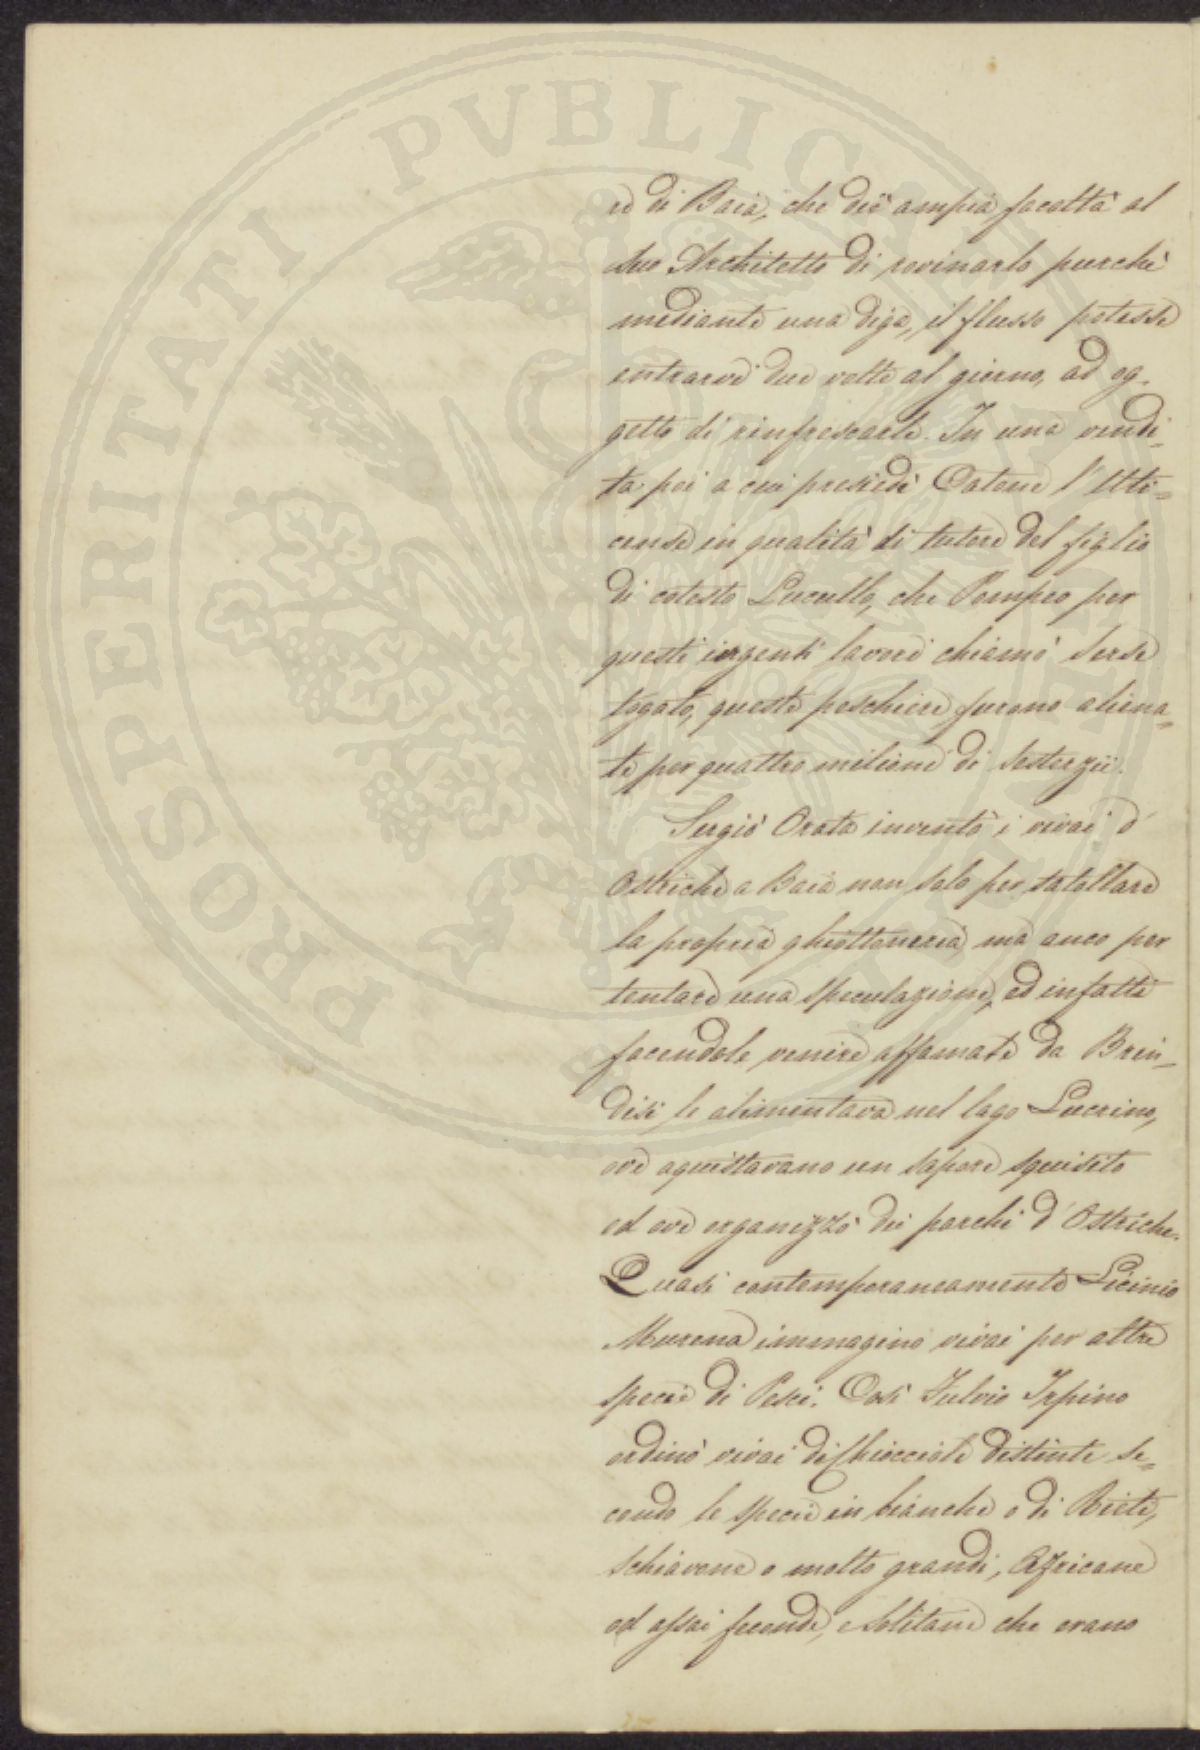 re di Baia, che diè ampia facoltà al
suo Architetto di rovinarlo purchè
mediante una diga, il flusso potesse
entrarvi due volte al giorno, ad og-
getto di rinfrescarle. In una vendi-
ta poi a cui presiedè Catone l'Uti-
cense in qualità di tutore del figlio
di cotesto Lucullo, che Pompeo per
questi ingenti lavori chiamò Serse
togato, queste peschiere furono aliena-
te per quattro milioni di Sesterzii.
Sergio Orata inventò i vivai d'
Ostriche a Baia non solo per satollare
la propria ghiottoneria, ma anco per
tentare una speculazione, ed infatti
facendole venire affamate da Brin-
disi le alimentava nel lago Lucrino,
ove aquistavano un sapore squisito
ed ove organizzò dei parchi d'Ostriche.
Quasi contemporaneamente Licinio
Murena immagino vivai per altre
specie di Pesci. Così Fulvio Irpino
ordinò vivai di Chiocciole distinte se-
condo le specie in bianche o di Rieti,
schiavone o molto grandi, Affricane
ed assai feconde, e Solitane che erano
PROSPERITATI PVBLICAE